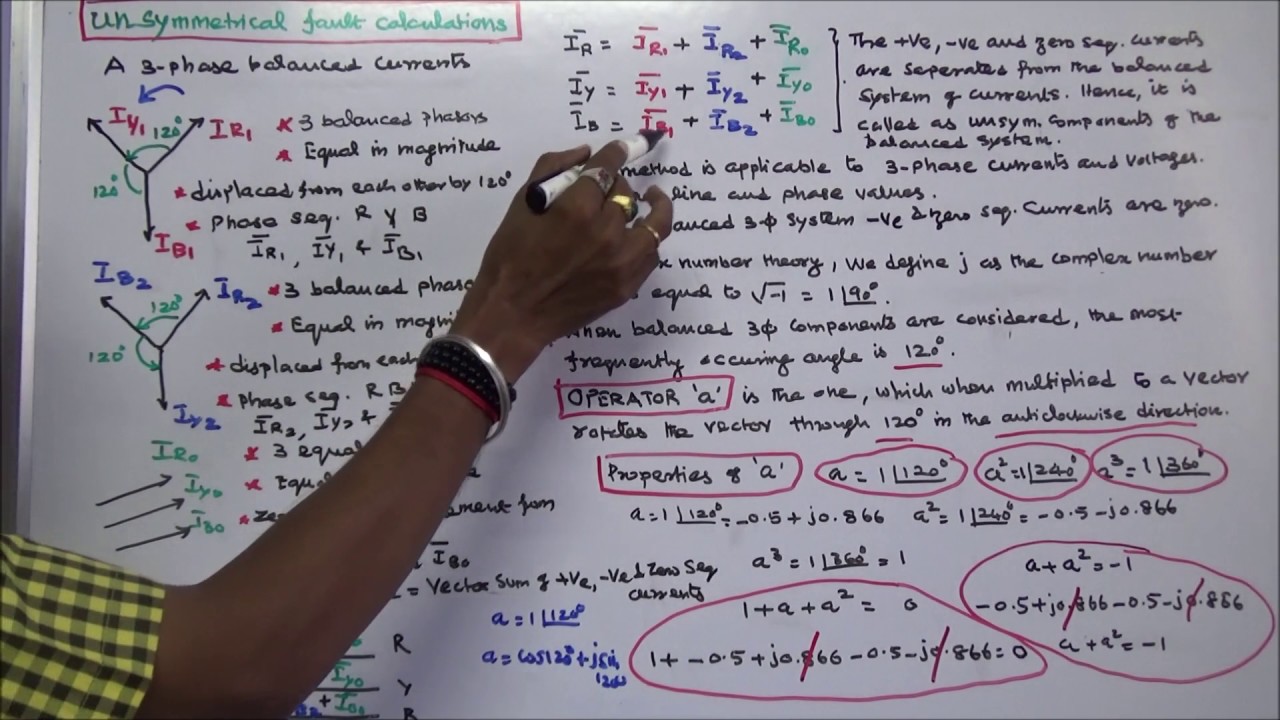 Unsymmetrical fault calculations
A 3-phase balanced currents
I̅Y1 120° I̅R1 * 3 balanced phasors
* Equal in magnitude
120° * displaced from each other by 120°
* Phase seq. R Y B
I̅B1 I̅R1, I̅Y1 & I̅B1
I̅B2 I̅R2 * 3 balanced phaso
120° * Equal in magni
120° * displaced from each
* phase seq. R B
I̅Y2 I̅R2, I̅Y2 &
I̅R0 * 3 equal
I̅Y0 * Equ
I̅B0 * Ze ement from
I̅B0
= Vector sum of +ve, -ve & zero seq
currents
R
I̅Y0 Y
+ I̅B0 B
I̅R = I̅R1 + I̅R2 + I̅R0
I̅Y = I̅Y1 + I̅Y2 + I̅Y0
I̅B = I̅B1 + I̅B2 + I̅B0
The +ve, -ve and zero seq. currents
are seperated from the balanced
system of currents. Hence, it is
called as unsym. components of the
balanced system.
method is applicable to 3-phase currents and voltages.
line and phase values.
anced 3-ϕ system -ve & zero seq. currents are zero.
x number theory, we define j as the complex number
equal to √-1 = 1∠90°.
when balanced 3ϕ components are considered, the most
frequently occuring angle is 120°.
OPERATOR 'a' is the one, which when multiplied to a vector
rotates the vector through 120° in the anticlockwise direction.
Properties of 'a' a = 1∠120° a² = 1∠240° a³ = 1∠360°
a = 1∠120° = -0.5 + j0.866 a² = 1∠240° = -0.5 - j0.866
a³ = 1∠360° = 1
a = 1∠120°
a = cos120° + jsin
120°
1 + a + a² = 0
1 + -0.5 + j0.866 - 0.5 - j0.866 = 0
a + a² = -1
-0.5 + j0.866 - 0.5 - j0.866
a + a² = -1